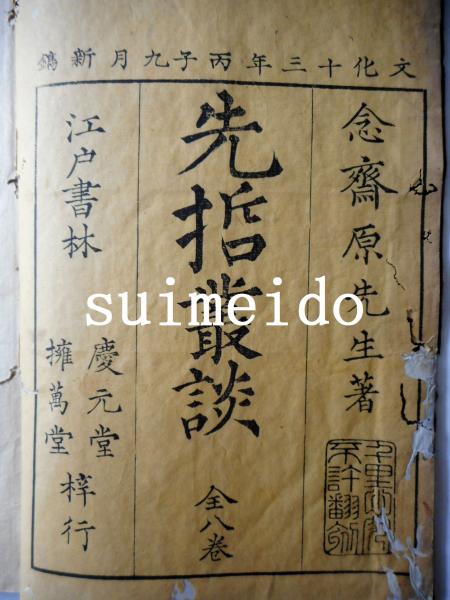 文化十三年丙子九月新鐫
念齋原先生著
千里必究
不許翻刻
先哲叢談
全八卷
江户書林
慶元堂
擁萬堂
梓行
suimeido